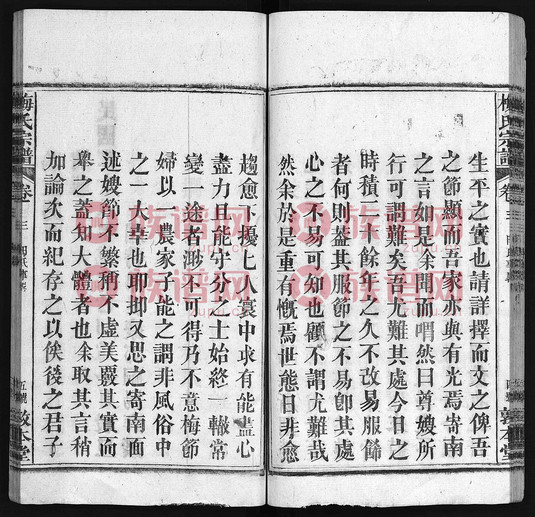 生平之實也請詳擇而文之俾吾
之節顯而吾家亦與有光焉寄南
之言如是余聞而喟然曰尊嫂所
行可謂難矣吾尤難其處今日之
時積二十餘年之久不改易服飾
者何則葢其服節之不易卽其處
心之不易可知也顧不謂尤難哉
然余於是重有慨焉世態日非愈
趨愈下擾七人寰中求有能盡心
盡力且能守分之士始終一轍常
變一途者渺不可得乃不意梅節
婦以一農家子能之謂非風俗中
之一大幸也耶抑又思之寄南面
述嫂節不繁稱不虛美覈其實而
舉之蓋知大體者也余取其言稍
加論次而紀存之以俟後之君子
梅氏宗譜
卷三
敦本堂
梅氏宗譜
卷三
五號
敦本堂
族谱网
族谱网
族谱网
族谱网